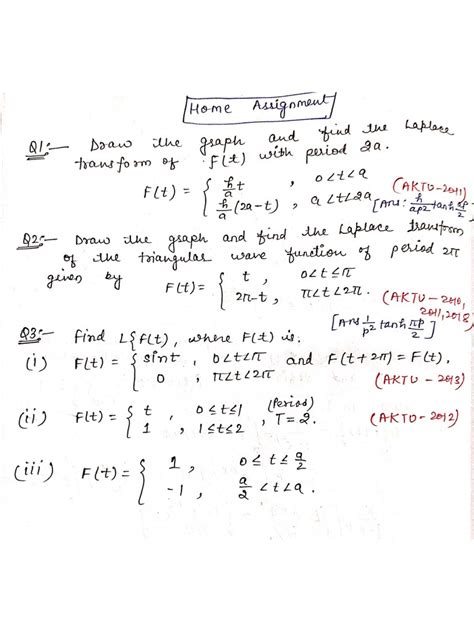 Home Assignment
Q1:- Draw the graph and find the Laplace
transform of F(t) with period 2a.
F(t) = { h/a t , 0<t<a
h/a (2a-t) , a<t<2a (AKTU-2011)
[Ans: h/ap² tanh ap/2]
Q2:- Draw the graph and find the Laplace transform
of the triangular wave function of period 2π
given by F(t) = { t , 0<t≤π
2π-t , π<t<2π. (AKTU-2010, 2011, 2018)
[Ans 1/p² tanh πp/2]
Q3:- Find L{F(t)}, where F(t) is.
(i) F(t) = { sint , 0<t<π and F(t+2π) = F(t),
0 , π<t<2π (AKTU-2013)
(ii) F(t) = { t , 0≤t≤1 (Period)
1 , 1≤t≤2 , T=2. (AKTU-2012)
(iii) F(t) = { 1 , 0≤t≤a/2
-1 , a/2<t<a.